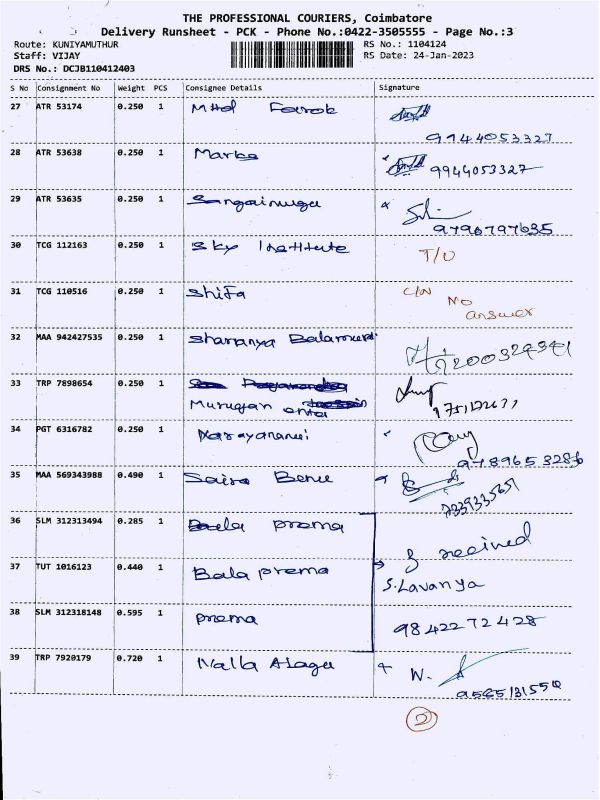 THE PROFESSIONAL COURIERS, Coimbatore
Delivery Runsheet - PCK - Phone No.:0422-3505555 - Page No.:3
Route: KUNIYAMUTHUR RS No.: 1104124
Staff: VIJAY RS Date: 24-Jan-2023
DRS No.: DCJB110412403
S No Consignment No Weight PCS Consignee Details Signature
27 ATR 53174 0.250 1 Mhd Farok
9944053327
28 ATR 53638 0.250 1 Marks 9944053327
29 ATR 53635 0.250 1
9796797635
30 TCG 112163 0.250 1 Sky Institute T/O
31 TCG 110516 0.250 1 Shifa C/N No
answer
32 MAA 942427535 0.250 1 Sharanya
33 TRP 7898654 0.250 1
Murugan
34 PGT 6316782 0.250 1
9789653286
35 MAA 569343988 0.490 1 Saira Benu
36 SLM 312313494 0.285 1 prema 3 received
37 TUT 1016123 0.440 1 Bala prema S.Lavanya
38 SLM 312318148 0.595 1 prema 9842272428
39 TRP 7920179 0.720 1 Nalla Alagu W.
2